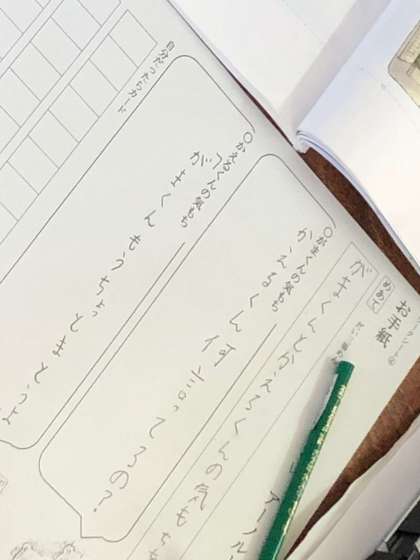 お手紙
めあて
がまくんとかえるくんの気もち
○がまくんの気もち
かえるくん何言ってるの?
○かえるくんの気もち
がまくんもうちょっとまとうよ
自分だったらカード